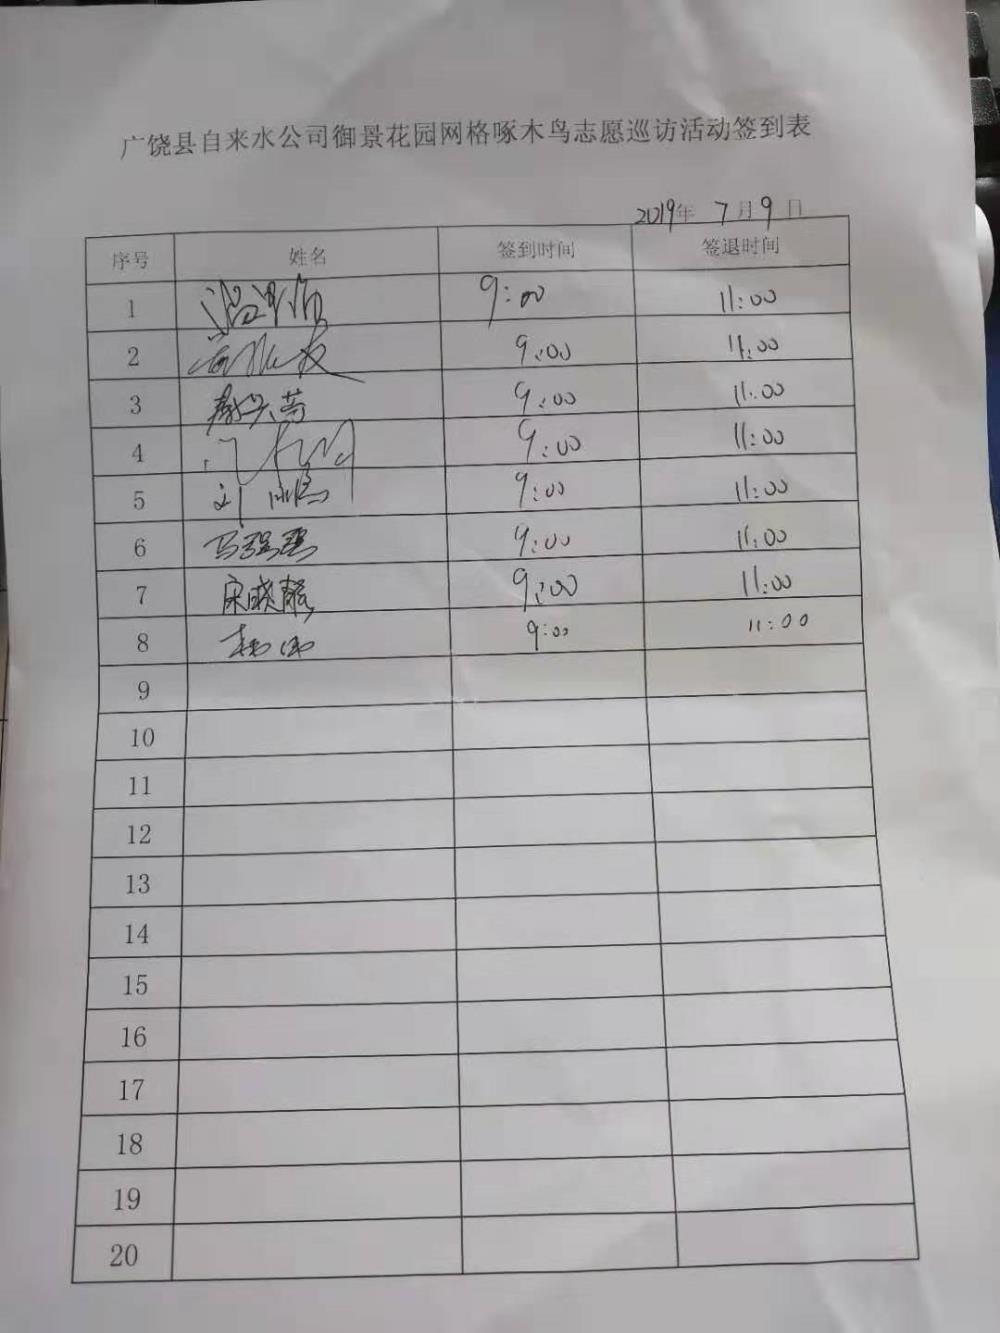 广饶县自来水公司御景花园网格啄木鸟志愿巡访活动签到表
2019年 7月9日
序号 姓名 签到时间 签退时间
1 9:00 11:00
2 9:00 11:00
3 9:00 11:00
4 9:00 11:00
5 刘 9:00 11:00
6 9:00 11:00
7 宋晓馥 9:00 11:00
8 9:00 11:00
9
10
11
12
13
14
15
16
17
18
19
20